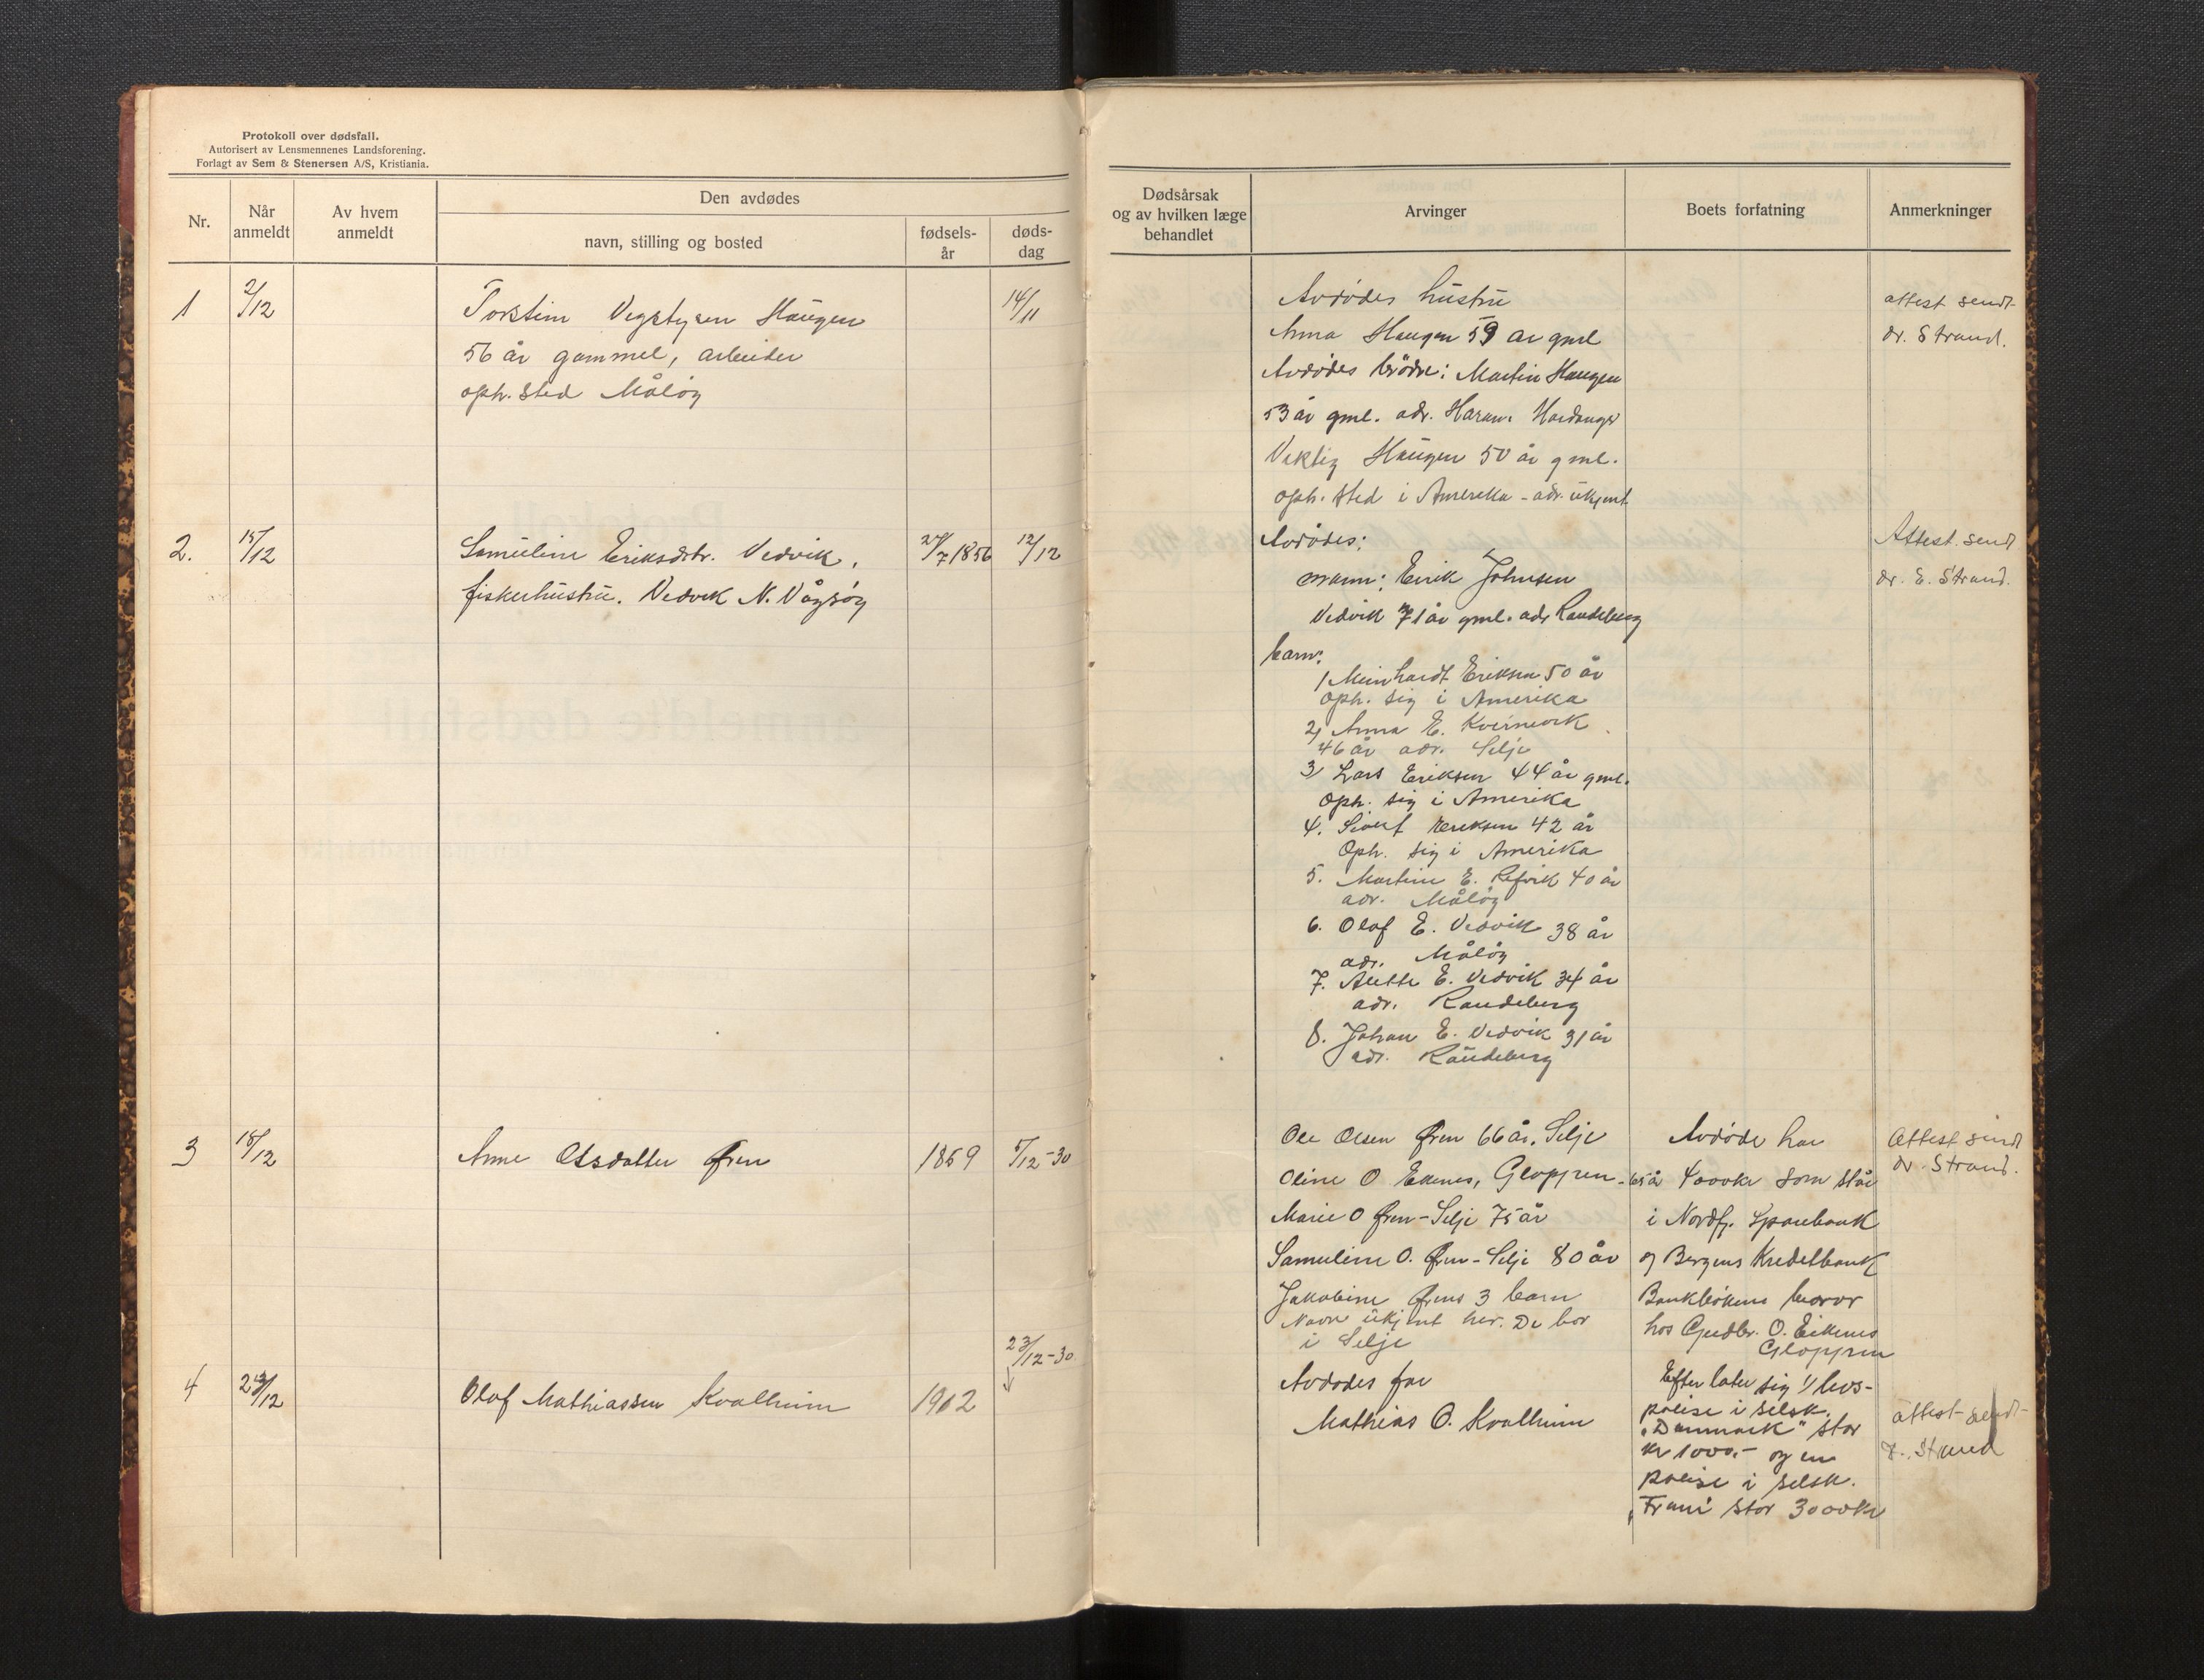 Protokoll over dødsfall.
Autorisert av Lensmennenes Landsforening.
Forlagt av Sem & Stenersen A/S, Kristiania.
Nr.
Når anmeldt
Av hvem anmeldt
Den avdødes
navn, stilling og bosted
fødsels-
år
døds-
dag
1
2/12
Torstein Haugen
14/11
56 år gammel, arbeider
oph. sted Måløy
2.
15/12
Samuline Eriksdtr. Vedvik.
1856
12/12
fiskerhustru. Vedvik N. Vågsøy
3
18/12
Anne Olsdatter Øren
1869
5/12-30
23/12-30
4
Olaf Mathiassen Kvalheim
1912
Dødsårsak
og av hvilken læge
behandlet
Arvinger
Boets forfatning
Anmerkninger
Avdødes hustru
Anna Haugen 59 år gml
Avdødes brødre: Martin Haugen
53 år gml. adr. Hardanger
Haugen 50 år gml.
oph. sted i Amerika - adr. ukjent
attest sendt
dr. Strand.
Avdødes:
mann: Eirik Johnsen
Vedvik 71 år gml. adr Raudeberg
barn:
1 Meinhardt Eriksen 50 år
oph. sig i Amerika
2) Anna E. Kvernevik
46 år adr. Selje
3) Lars Eriksen 44 år gml.
oph. sig i Amerika
4. Sivert Eriksen 42 år
Oph. sig i Amerika
5. Martine E. Refvik 40 år
adr. Måløy
6. Olaf E. Vedvik 38 år
adr. Måløy
7. Alette E. Vedvik 34 år
adr. Raudeberg
8. Johan E. Vedvik 31 år
adr. Raudeberg
Attest send
dr. E. Strand.
Ole Olsen Øren 66 år, Selje
Oline O Eikenes, Gloppen - 65 år
Marie O Øren - Selje 75 år
Samuline O. Øren - Selje 80 år
Jakobine Ørens 3 barn
Navn ukjent her. De bor
i Selje
Avdøde har
4000 kr som står
i Nordfj. Sparebank
og Bergens Kreditbank
Bankbøkene beror
hos Gredbr. O. Eikenes
Gloppen
Attest send
dr. Strand.
Avdødes far
Mathias O. Kvalheim
Efterlater sig 1 livs-
polise i selsk.
"Danmark" stor
kr 1000.- og en
polise i selsk.
"Fram" stor 3000 kr
attest sendt
dr. Strand